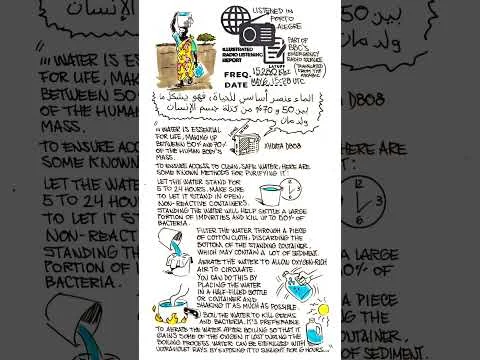 LISTENED IN
PORTO
ALEGRE
ILLUSTRATED
RADIO LISTENING
REPORT
PART OF
BBC'S
EMERGENCY
RADIO SERVICE
(TRANSLATED
FROM THE
ARABIC)
FREQ.
DATE
الماء عنصر أساسي للحياة، فهو يشكل ما
بين 50 و 70% من كتلة جسم الإنسان
"WATER IS ESSENTIAL
FOR LIFE, MAKING UP
BETWEEN 50% AND 70%
OF THE HUMAN BODY'S
MASS.
TO ENSURE ACCESS TO CLEAN, SAFE WATER, HERE ARE
SOME KNOWN METHODS FOR PURIFYING IT:
LET THE WATER STAND FOR
5 TO 24 HOURS. MAKE SURE
TO LET IT STAND IN OPEN,
NON-REACTIVE CONTAINERS.
STANDING THE WATER WILL HELP SETTLE A LARGE
PORTION OF IMPURITIES AND KILL UP TO 50% OF
BACTERIA.
FILTER THE WATER THROUGH A PIECE
OF COTTON CLOTH, DISCARDING THE
BOTTOM OF THE STANDING CONTAINER,
WHICH MAY CONTAIN A LOT OF SEDIMENT.
AERATE THE WATER TO ALLOW OXYGEN-RICH
AIR TO CIRCULATE.
YOU CAN DO THIS BY
PLACING THE WATER
IN A HALF-FILLED BOTTLE
OR CONTAINER AND
SHAKING IT AS MUCH AS POSSIBLE.
BOIL THE WATER TO KILL GERMS
AND BACTERIA. IT'S PREFERABLE
TO AERATE THE WATER AFTER BOILING SO THAT IT
GAINS SOME OF THE OXYGEN IT LOST DURING THE
BOILING PROCESS. WATER CAN BE STERILIZED WITH
ULTRAVIOLET RAYS BY EXPOSING IT TO SUNLIGHT FOR 6 HOURS...